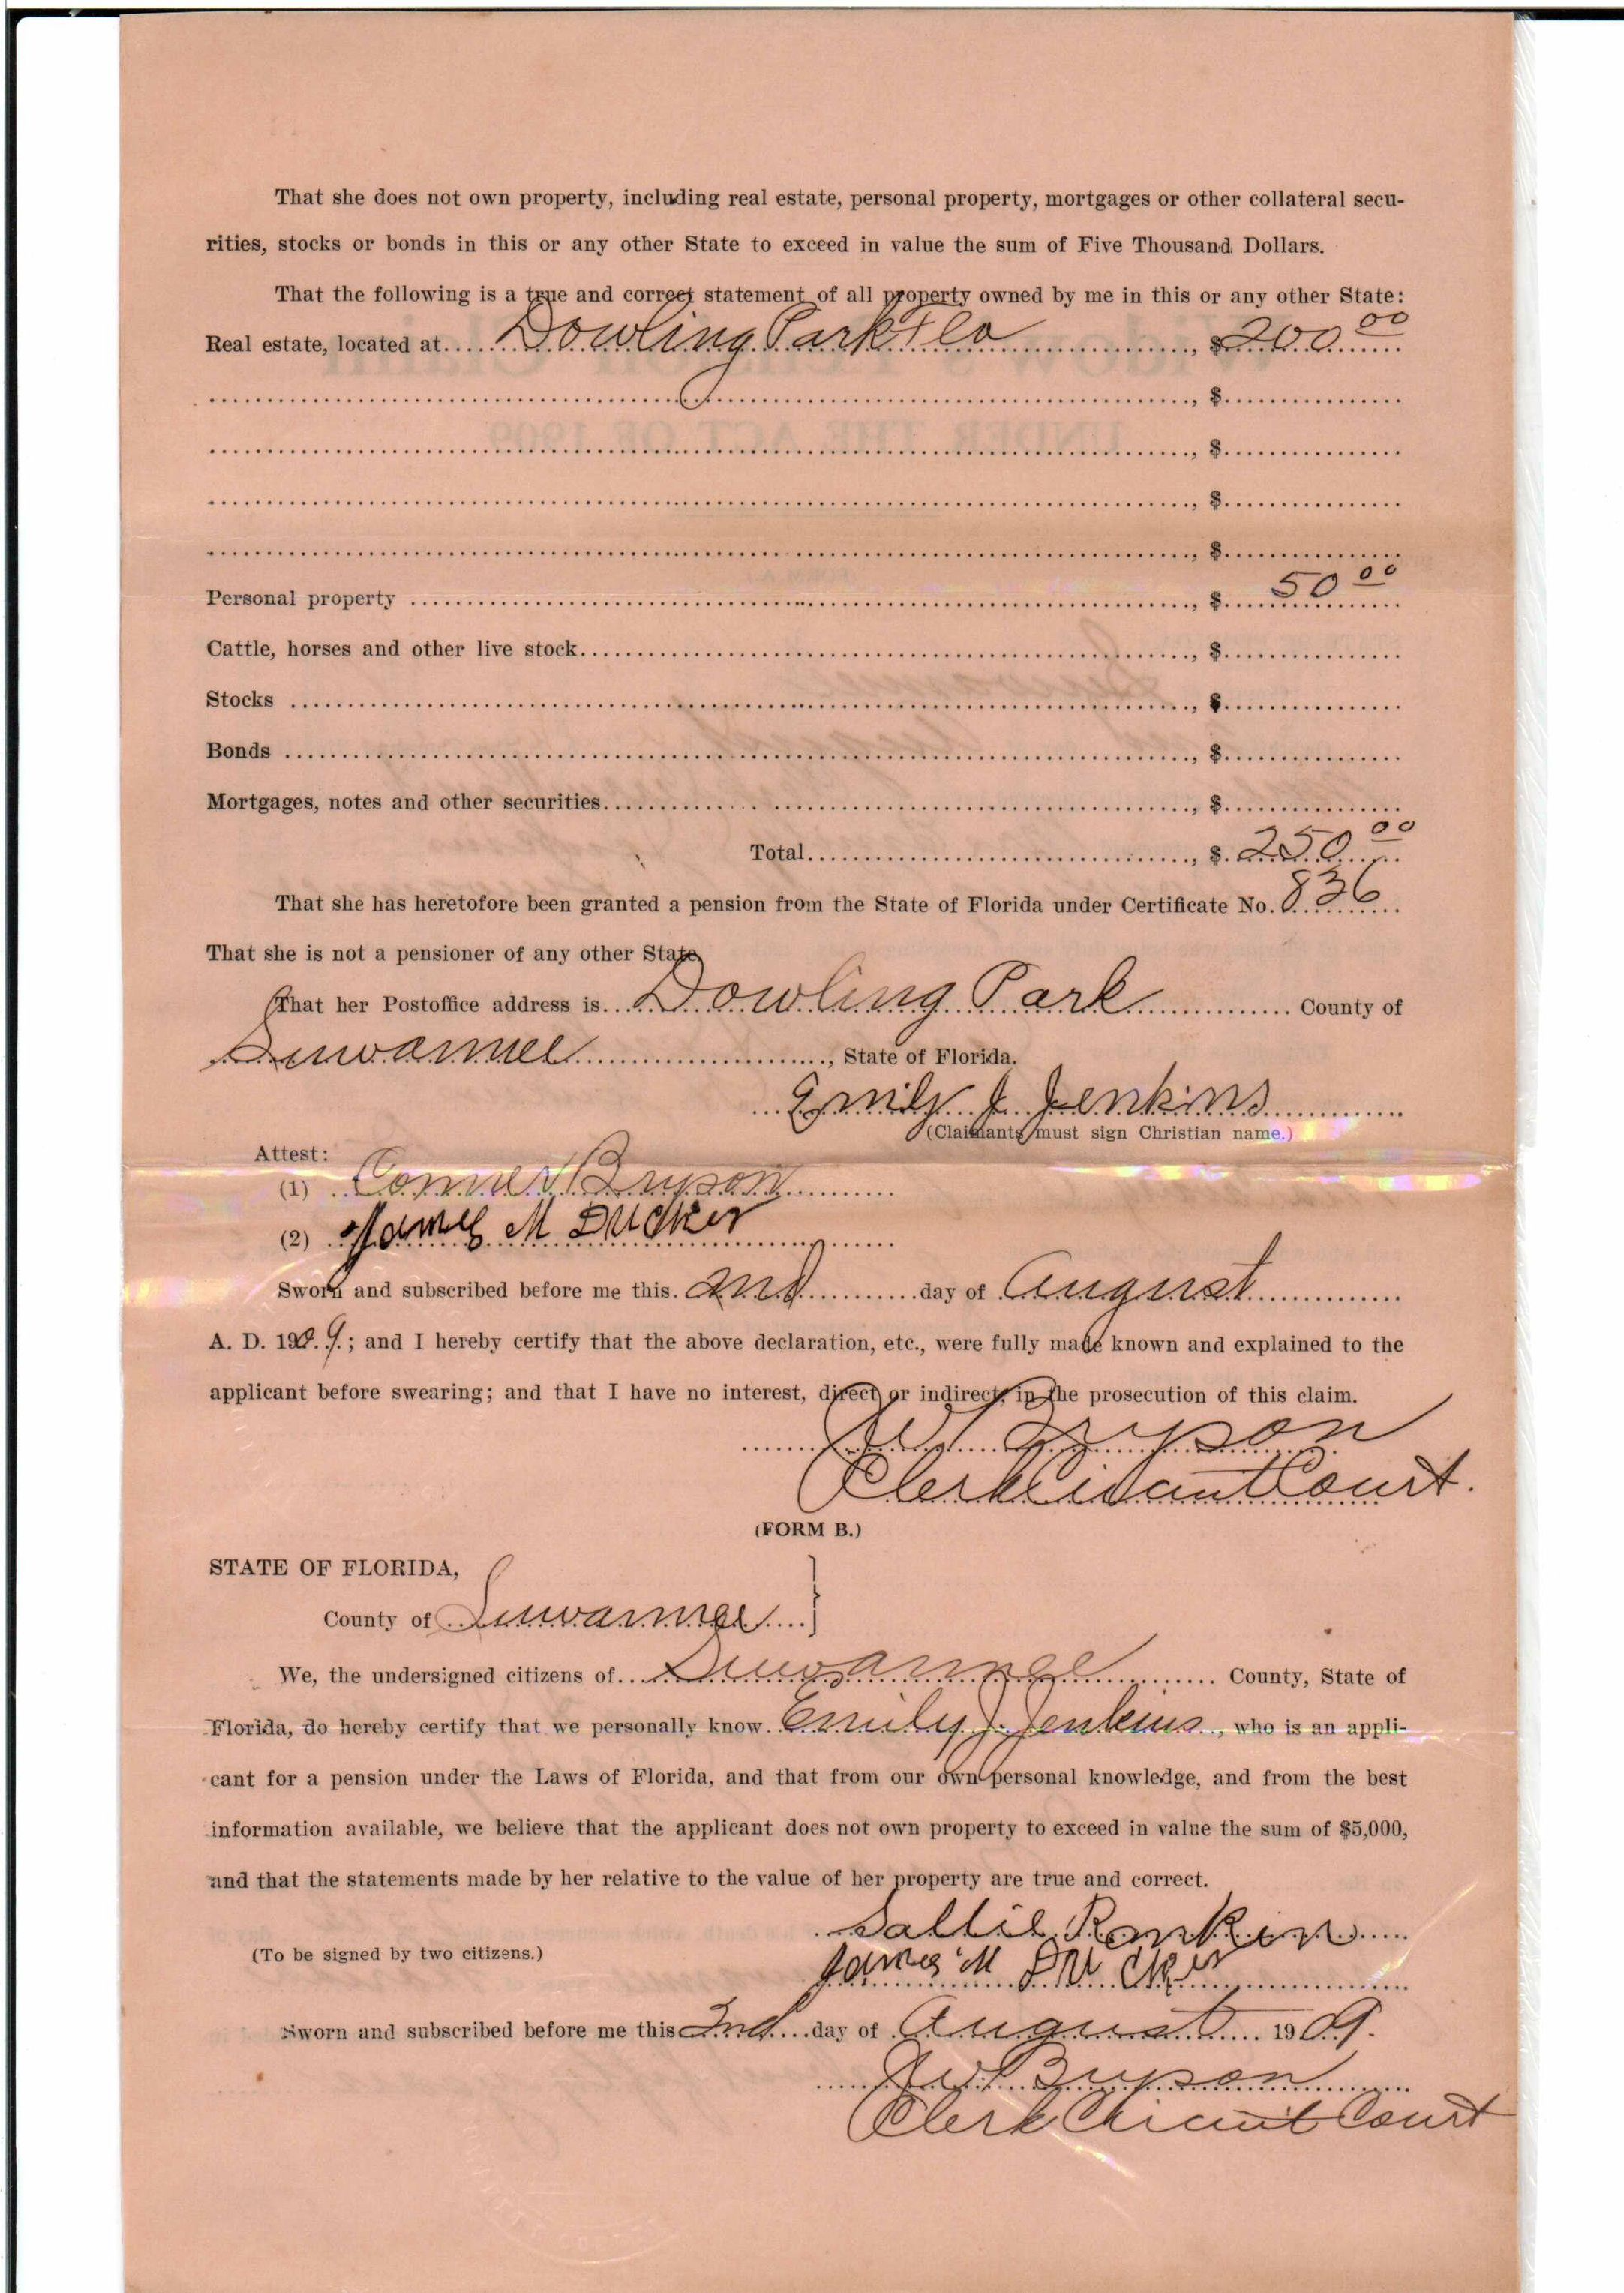 That she does not own property, including real estate, personal property, mortgages or other collateral secu-
rities, stocks or bonds in this or any other State to exceed in value the sum of Five Thousand Dollars.
That the following is a true and correct statement of all property owned by me in this or any other State:
Real estate, located at.... Dowling Park Fla ...................., $200 00
...................., $................
...................., $................
...................., $................
...................., $................
Personal property ...................., $ 50 00
Cattle, horses and other live stock...................., $................
Stocks ...................., $................
Bonds ...................., $................
Mortgages, notes and other securities...................., $................
Total...................., $ 250 00
That she has heretofore been granted a pension from the State of Florida under Certificate No. 836
That she is not a pensioner of any other State
That her Postoffice address is... Dowling Park ............ County of
Suwannee ...................., State of Florida.
Emily J Jenkins
(Claimants must sign Christian name.)
Attest:
(1) Bryson
(2) James M Ducker
Sworn and subscribed before me this. 2nd ..........day of August ............
A. D. 1909.; and I hereby certify that the above declaration, etc., were fully made known and explained to the
applicant before swearing; and that I have no interest, direct or indirect, in the prosecution of this claim.
J W Bryson
Clerk Circuit Court.
(FORM B.)
STATE OF FLORIDA,
County of Suwannee .... }
We, the undersigned citizens of... Suwannee ............ County, State of
Florida, do hereby certify that we personally know. Emily J. Jenkins.., who is an appli-
cant for a pension under the Laws of Florida, and that from our own personal knowledge, and from the best
information available, we believe that the applicant does not own property to exceed in value the sum of $5,000,
and that the statements made by her relative to the value of her property are true and correct.
Sallie Rankin
(To be signed by two citizens.)
James M Ducker
Sworn and subscribed before me this 2nd ....day of August ...... 1909.
J W Bryson
Clerk Circuit Court